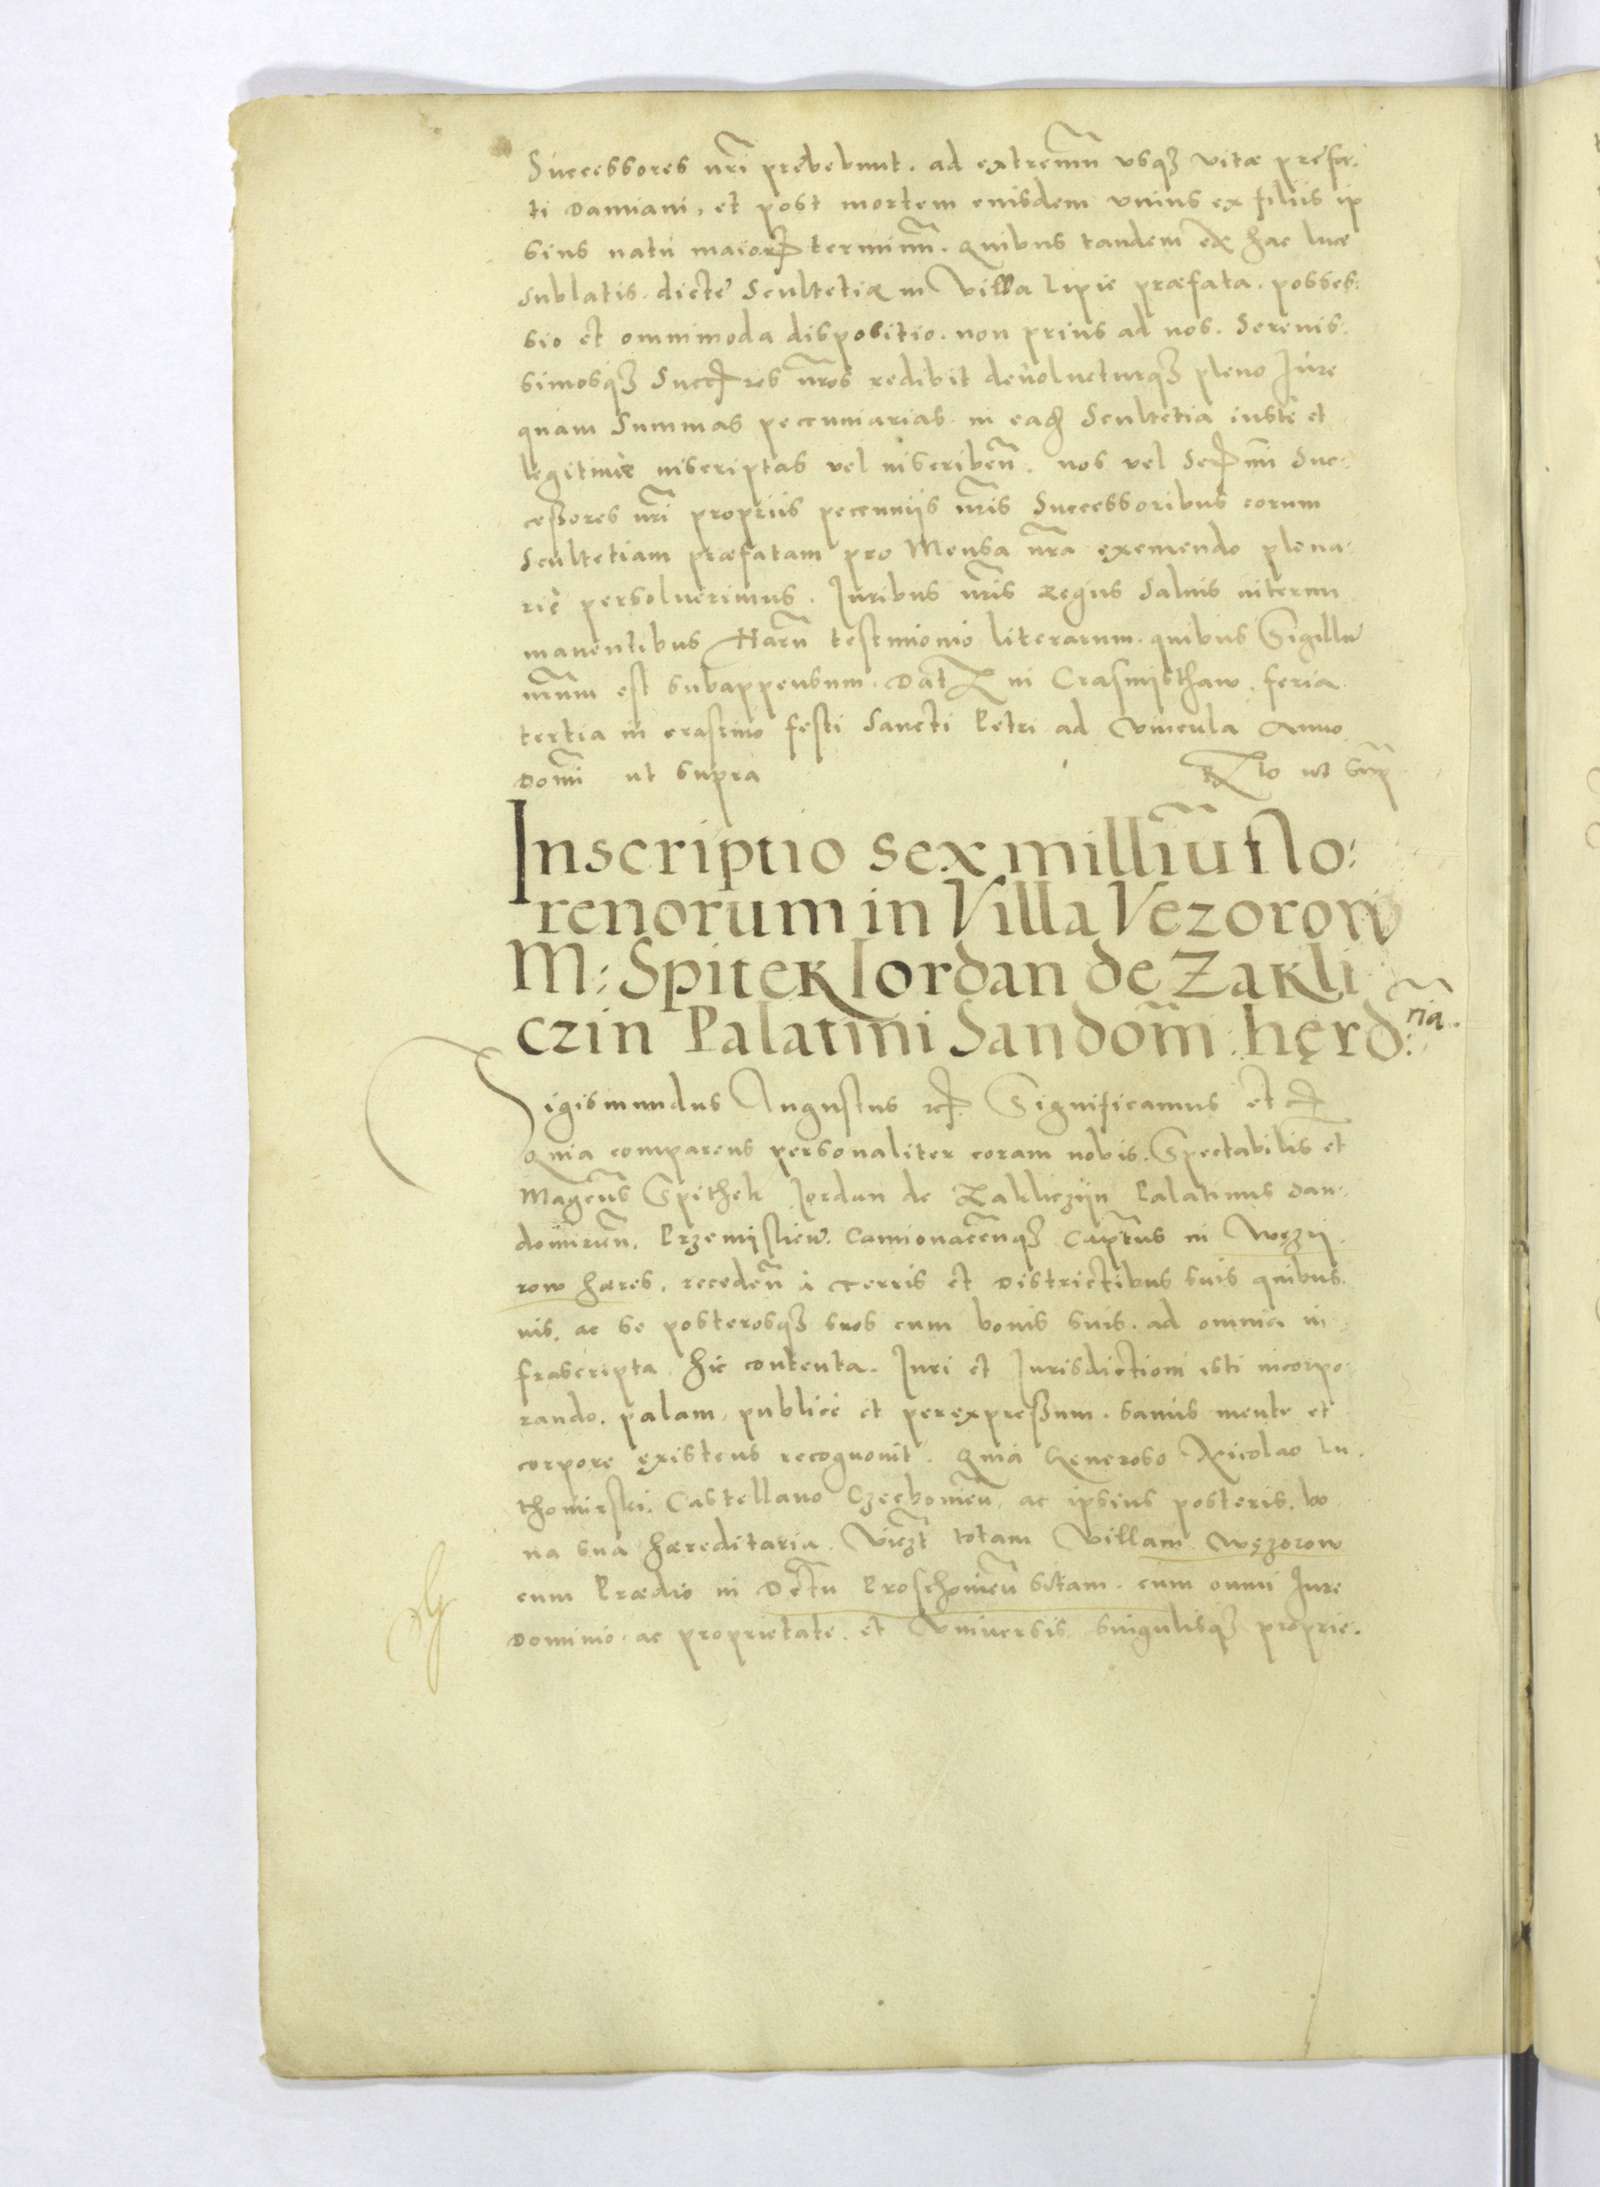 Successores nr̃i prebebunt. ad extremũ vsqꝫ vitæ prefa-
ti Damiani, et post mortem eiusdem vnius ex filiis ip
sius natu maior terminũ. Quibus tandem ex hac luce
sublatis. dictę Scultetiæ in Villa Lipie præfata. posses-
sio et omnimoda dispositio. non prius ad nos. Serenis-
simosqꝫ Succes res nr̃os redibit devolueturqꝫ pleno Jure
quam Summas pecuniarias in eadẽ Scultetia iuste et
legitime inscriptas vel inscribeñ. nos vel Ser mi Suc-
ceßores nr̃i propriis pecuniis nr̃is Successoribus eorum
Scultetiam præfatam pro Mensa nr̃a eximendo plena-
riè persoluerimus. Juribus nr̃is Regiis saluis interim
manentibus Harũ testimonio literarum. quibus Sigillũ
nr̃um est subappensum. Dat in Crasnisthaw. feria
tertia in crastino festi Sancti Petri ad vincula Anno
Domĩ ut supra Rlo ut sup̃
Inscriptio sex milliũ flo:
renorum in Villa Vezorow
M: Spitek Iordan de Zakli
czin Palatini Sandom̃. hęrd:ria.
Sigismundus Augustus rc. Significamus etc
Quia comparens personaliter coram nobis. Spectabilis et
Magcus Spithek Jordan de Zakliczijn Palatinus San-
domireñ. Przemisliew. Camionaceñqꝫ Captus in Węzy-
row hæres. recedeñ à Terris et Districtibus suis quibus-
uis. ac se posterosqꝫ suos cum bonis suis. ad omnia in-
frascripta hic contenta. Juri et Jurisdictioni isti incorpo-
rando. palam, publicè et per expreßum. sanus mente et
corpore existens recognouit. Quia Generoso Nicolao Lu-
thomirski. Castellano Czechouieñ. ac ipsius posteris. bo
na sua hæreditaria. Vicꝫt totam Villam Węzorow
cum Prædio in Dctu Proschouieñ sitam. cum omni Jure
Dominio. ac proprietate. et vniuersis singulisqꝫ proprie-